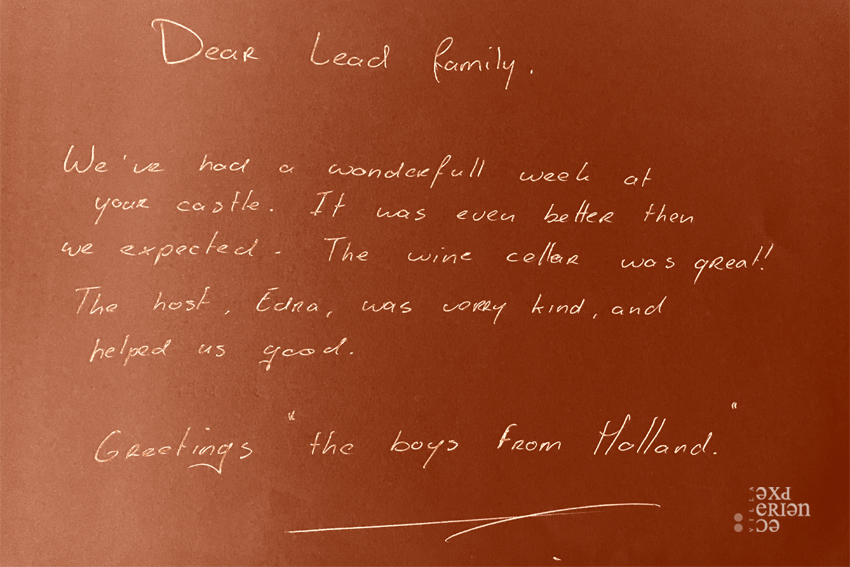 Dear Lead family.
We've had a wonderfull week at
your castle. It was even better then
we expected. The wine cellar was great!
The host, Edna, was verry kind, and
helped us good.
Greetings "the boys from Holland."
VILLA
exp
erien
ce